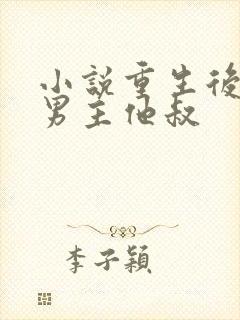 小說重生後
男主他叔
李子穎